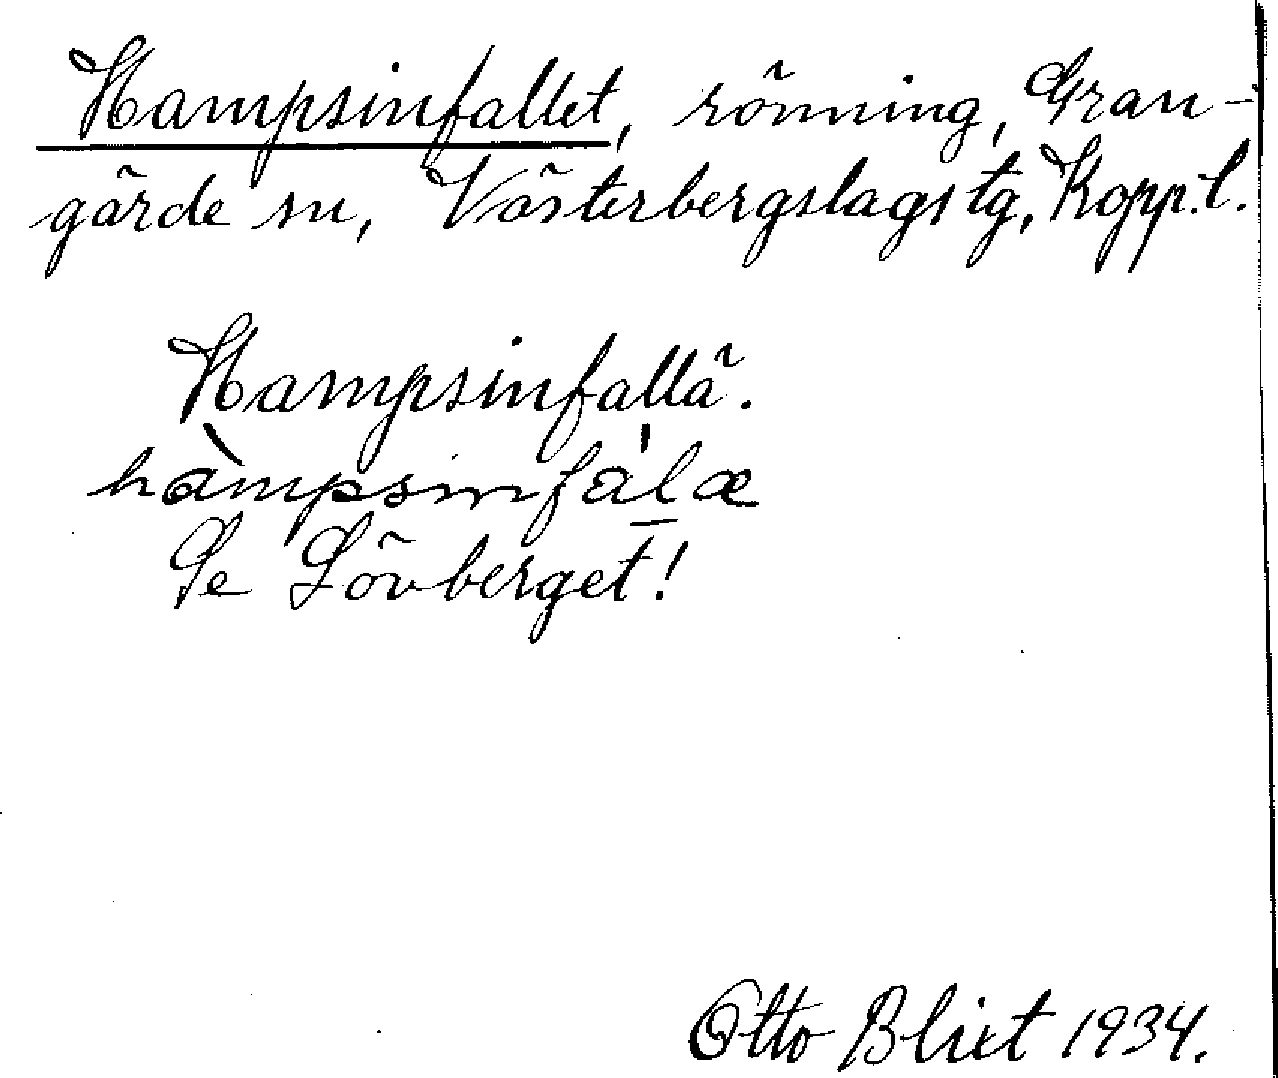 Hampsinfallet, röjning, Gran-
gärde sn, Västerbergslags tg, Kopp.l.
Hampsinfallä.
hàmpsinfálæ
Se Lövberget!
Otto Blixt 1934.